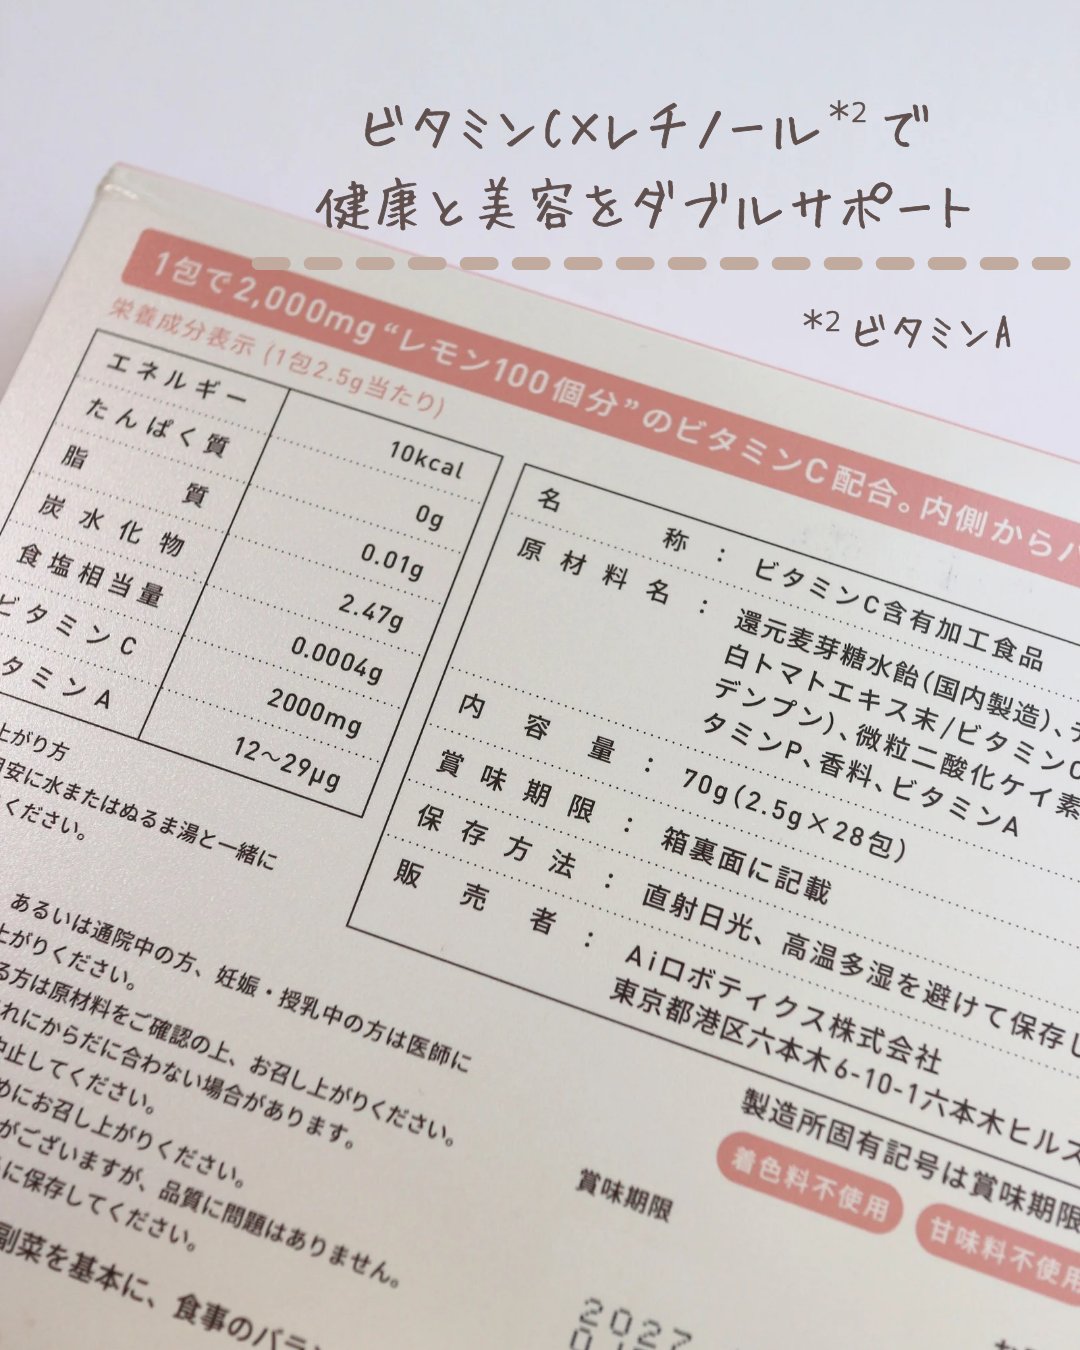 ビタミンC×レチノール*2で
健康と美容をダブルサポート
*2ビタミンA
1包で2,000mg“レモン100個分”のビタミンC配合。内側から
栄養成分表示(1包2.5g当たり)
エネルギー 10kcal
たんぱく質 0g
脂質 0.01g
炭水化物 2.47g
食塩相当量 0.0004g
ビタミンC 2000mg
タミンA 12〜29μg
名称:ビタミンC含有加工食品
原材料名:還元麦芽糖水飴(国内製造)、デ
白トマトエキス末/ビタミンC
デンプン)、微粒二酸化ケイ素
タミンP、香料、ビタミンA
内容量:70g(2.5g×28包)
賞味期限:箱裏面に記載
保存方法:直射日光、高温多湿を避けて保存し
販売者:Aiロボティクス株式会社
東京都港区六本木6-10-1六本木ヒルズ
製造所固有記号は賞味期限
着色料不使用
甘味料不使用
賞味期限
2027
上がり方
目安に水またはぬるま湯と一緒に
ください。
あるいは通院中の方、妊娠・授乳中の方は医師に
上がりください。
る方は原材料をご確認の上、お召し上がりください。
れにからだに合わない場合があります。
中止してください。
めにお召し上がりください。
がございますが、品質に問題はありません。
に保存してください。
副菜を基本に、食事のバラン